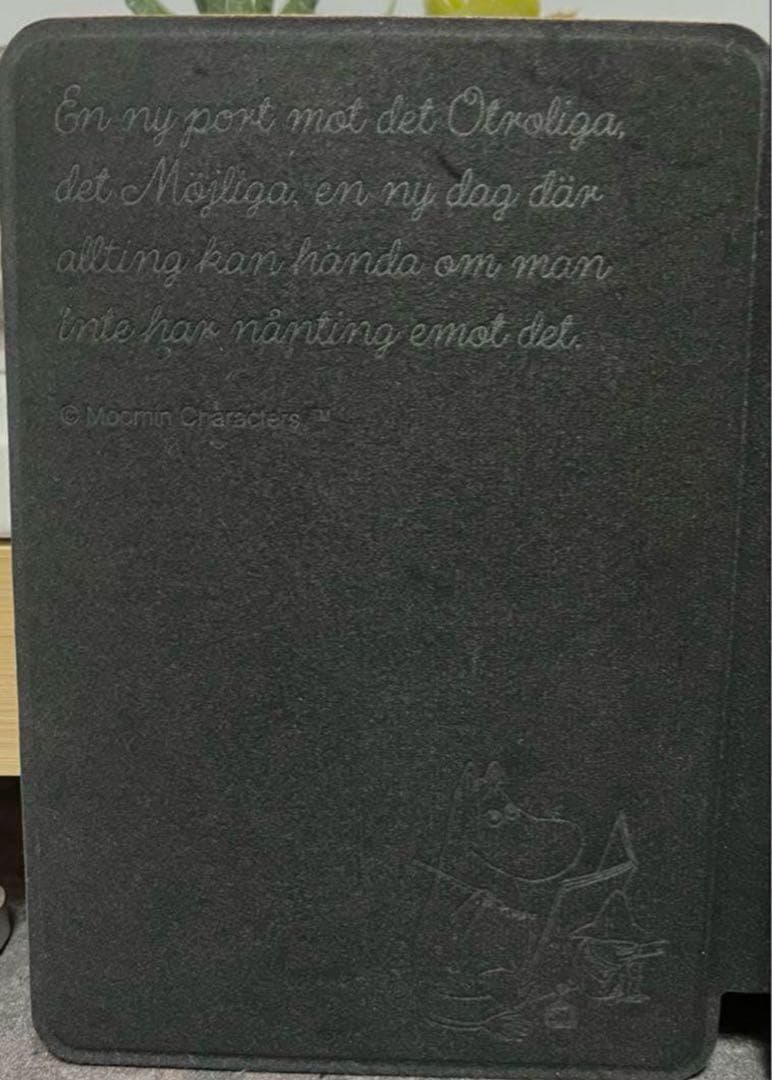 En ny port mot det Otroliga,
det Möjliga, en ny dag där
allting kan hända om man
inte har nånting emot det.
© Moomin Characters ™